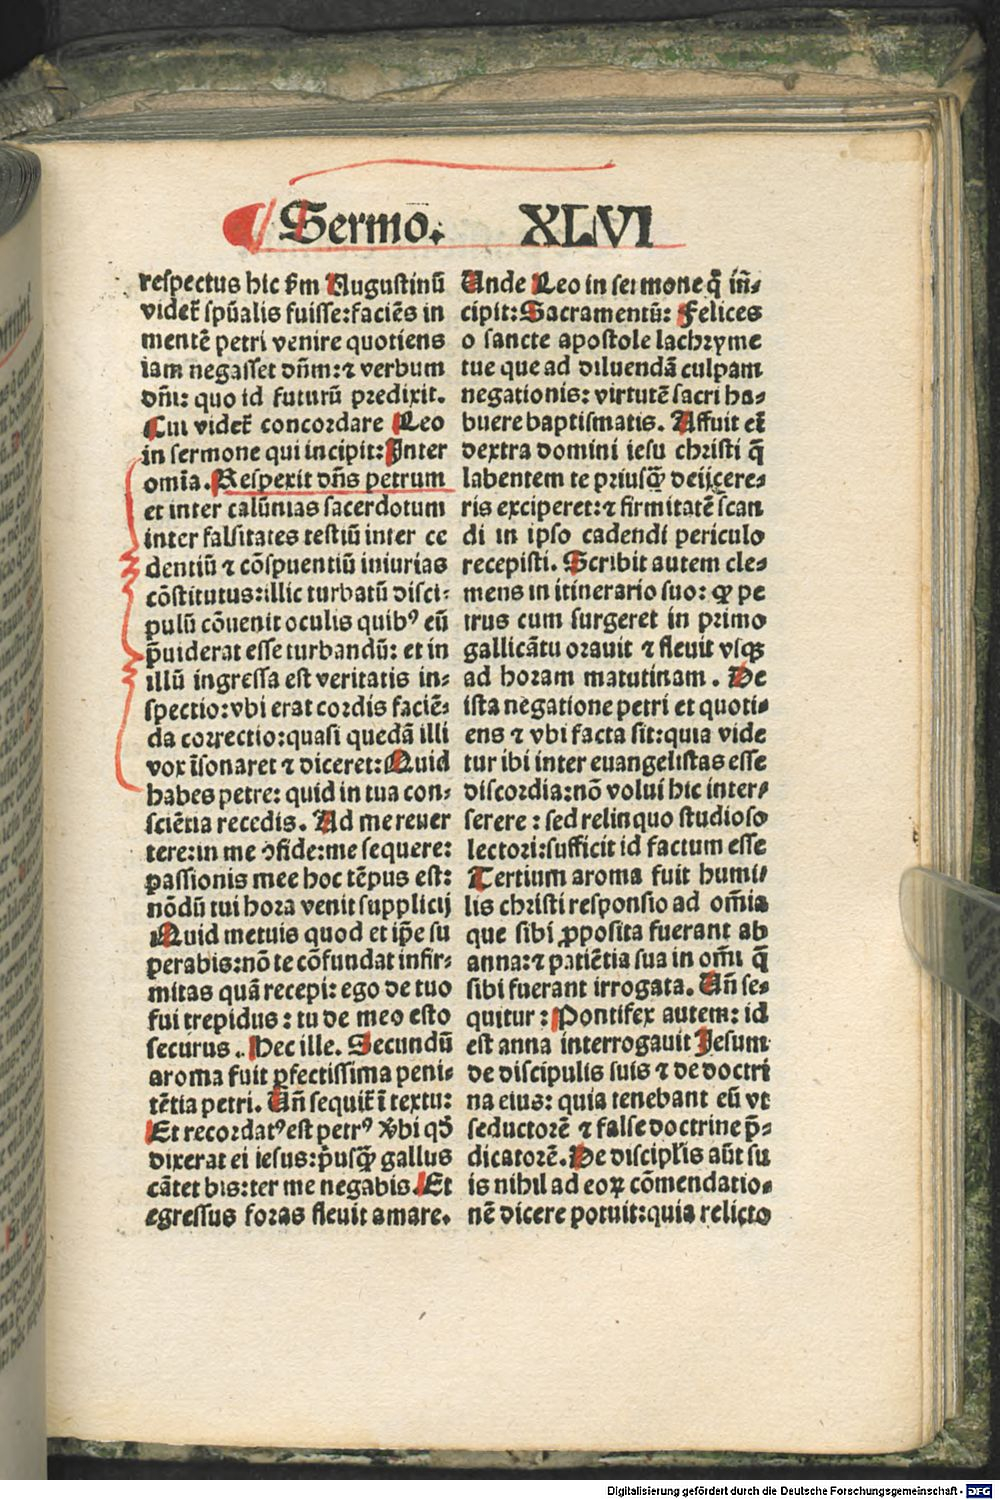 Sermo. XLVI
respectus hic ẜm Augustinū
videt̄ spūalis fuisse:faciēs in
mentē petri venire quotiens
iam negasset dn̄m:⁊ verbum
dn̄i: quo id futurū predixit.
Cui videt̄ concordare Leo
in sermone qui incipit: Inter
omīa. Respexit dn̄s petrum
et inter calūnias sacerdotum
inter falsitates testiū inter ce
dentiū ⁊ cōspuentiū iniurias
cōstitutus:illic turbatū disci-
pulū cōuenit oculis quibꝰ eū
p̄uiderat esse turbandū: et in
illū ingressa est veritatis in-
spectio:vbi erat cordis faciē-
da correctio:quasi quedā illi
vox īsonaret ⁊ diceret: Quid
habes petre: quid in tua con-
sciētia recedis. Ad me reuer
tere:in me ꝯfide:me sequere:
passionis mee hoc tēpus est:
nōdū tui hora venit supplicij
Quid metuis quod et ip̄e su
perabis:nō te cōfundat infir-
mitas quā recepi: ego de tuo
fui trepidus: tu de meo esto
securus. Hec ille. Secundū
aroma fuit ꝑfectissima peni-
tētia petri. Un̄ sequit̄ ī textu:
Et recordatꝰ est petrꝰ v̓bi qd̓
dixerat ei iesus:p̓usꝙ̄ gallus
cātet bis:ter me negabis. Et
egressus foras fleuit amare.
Unde Leo in sermone q̄ in̄-
cipit: Sacramentū: Felices
o sancte apostole lachryme
tue que ad diluendā culpam
negationis: virtutē sacri ha-
buere baptismatis. Affuit em̄
dextra domini iesu christi q̄
labentem te priusꝙ̄ deijcere-
ris exciperet:⁊ firmitatē stan
di in ipso cadendi periculo
recepisti. Scribit autem cle-
mens in itinerario suo: ꝙ pe
trus cum surgeret in primo
gallicātu orauit ⁊ fleuit vsqꝫ
ad horam matutinam. De
ista negatione petri et quoti-
ens ⁊ vbi facta sit:quia vide
tur ibi inter euangelistas esse
discordia:nō volui hic inter-
serere: sed relinquo studioso
lectori:sufficit id factum esse
Tertium aroma fuit humi-
lis christi responsio ad om̄ia
que sibi ꝓposita fuerant ab
anna:⁊ patiētia sua in om̄i q̄
sibi fuerant irrogata. Un̄ se-
quitur: Pontifex autem: id
est anna interrogauit Jesum
de discipulis suis ⁊ de doctri
na eius: quia tenebant eū vt
seductorē ⁊ false doctrine p̄-
dicatorē. De discipl̓is aūt su
is nihil ad eoꝝ cōmendatio-
nē dicere potuit:quia relicto
Digitalisierung gefördert durch die Deutsche Forschungsgemeinschaft - DFG